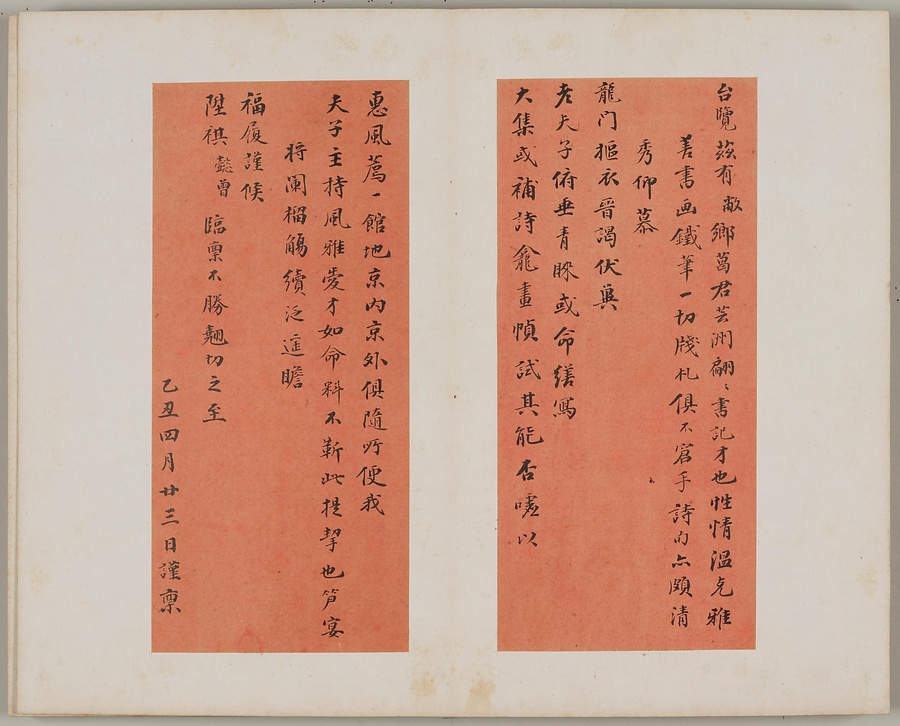 台覽茲有敝鄉葛君芸洲翩〻書記才也性情溫克雅
善書画鐵筆一切牋札俱不窘手詩句亦頗清
秀仰慕
龍门摳衣晉謁伏冀
老夫子俯垂青睞或命繕寫
大集或補詩龕畫幀試其能否噓以
惠風薦一館地京内京外俱隨所便我
夫子主持風雅愛才如命料不靳此提挈也笋宴
将闌榴觴續泛逹瞻
福履謹候
陞祺懿曾臨稟不勝翹切之至
乙丑四月廿三日謹稟